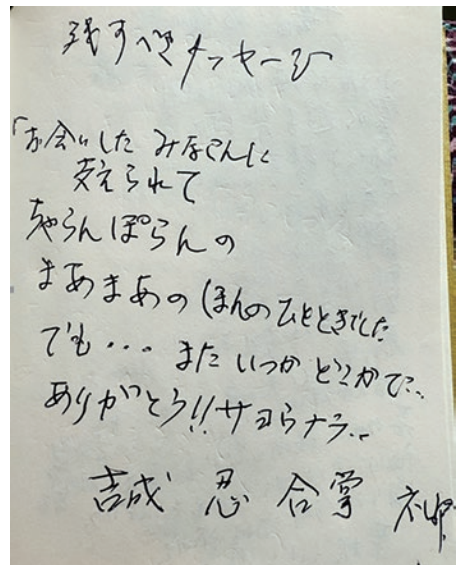 残すべきメッセージ
「お会いした みなさんに
支えられて
ちゃらんぽらんの
まあまあの ほんのひとときでした
でも・・・ また いつか どこかで・・
ありがとう!!サヨウナラ・・
吉成 忍 合掌